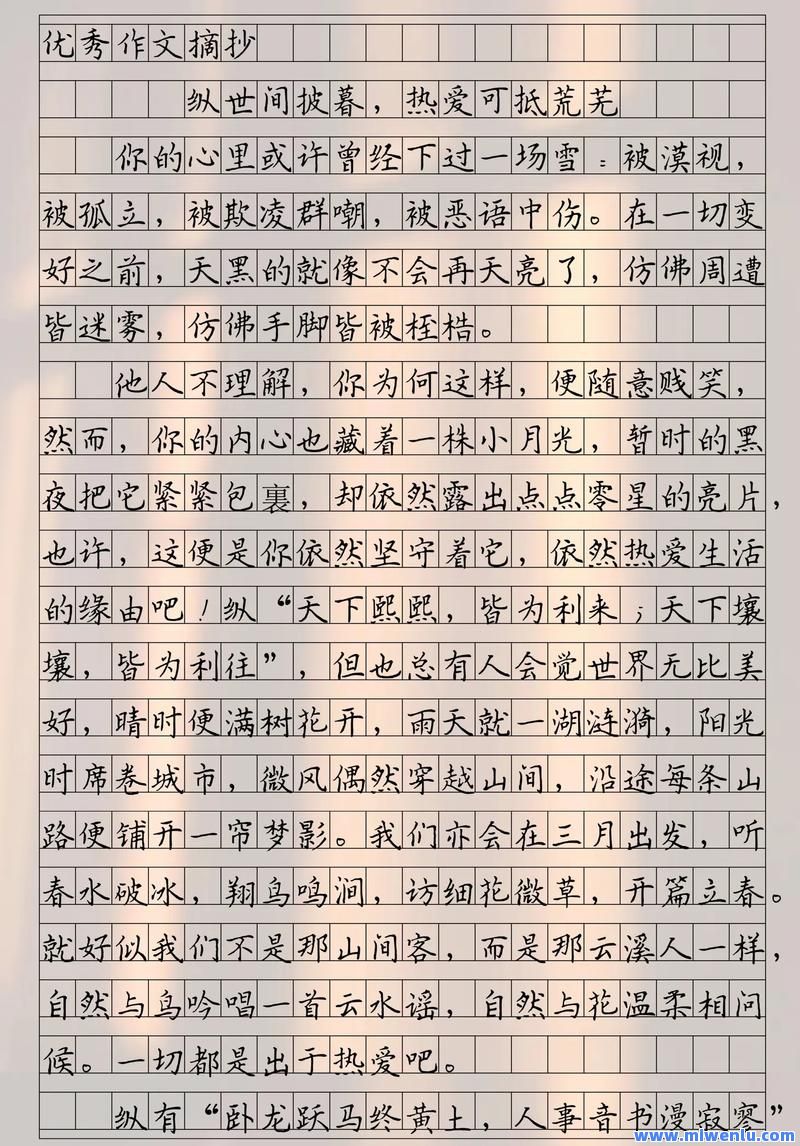 优秀作文摘抄
纵世间披暮，热爱可抵荒芜
你的心里或许曾经下过一场雪：被漠视，
被孤立，被欺凌群嘲，被恶语中伤。在一切变
好之前，天黑的就像不会再天亮了，仿佛周遭
皆迷雾，仿佛手脚皆被桎梏。
他人不理解，你为何这样，便随意贱笑，
然而，你的内心也藏着一株小月光，暂时的黑
夜把它紧紧包裹，却依然露出点点零星的亮片，
也许，这便是你依然坚守着它，依然热爱生活
的缘由吧！纵“天下熙熙，皆为利来；天下壤
壤，皆为利往”，但也总有人会觉世界无比美
好，晴时便满树花开，雨天就一湖涟漪，阳光
时席卷城市，微风偶然穿越山间，沿途每条山
路便铺开一帘梦影。我们亦会在三月出发，听
春水破冰，翔鸟鸣涧，访细花微草，开篇立春。
就好似我们不是那山间客，而是那云溪人一样，
自然与鸟吟唱一首云水谣，自然与花温柔相问
候。一切都是出于热爱吧。
纵有“卧龙跃马终黄土，人事音书漫寂寥”
www.miwenlu.com